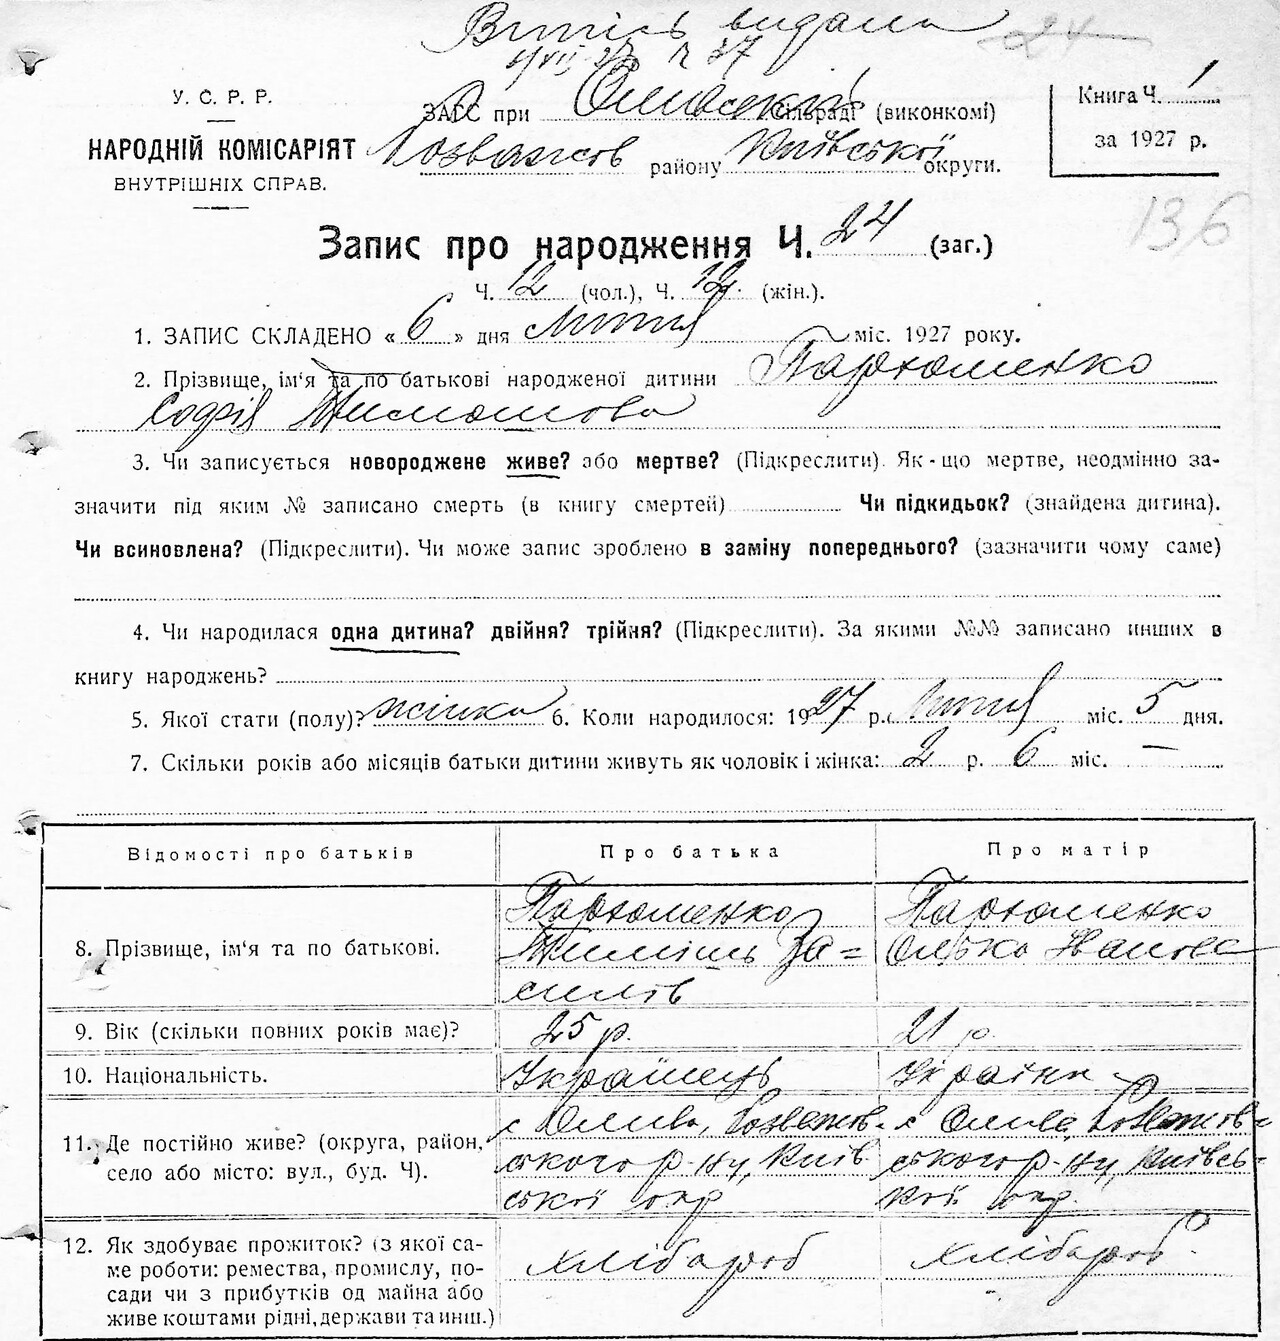 Витпісь видана
24
4/VII 37 ч 37
У. С. Р. Р.
НАРОДНІЙ КОМІСАРІЯТ
ВНУТРІШНІХ СПРАВ.
ЗАГС при Оливській Сільраді (виконкомі)
Розважів району Київської округи.
Книга Ч. 1
за 1927 р.
136
Запис про народження Ч. 24 (заг.)
Ч. 12 (чол.), Ч. 12. (жін.).
1. ЗАПИС СКЛАДЕНО « 6 » дня липня міс. 1927 року.
2. Прізвище, ім'я та по батькові народженої дитини Пархоменко
Софія Тимошова
3. Чи записується новороджене живе? або мертве? (Підкреслити). Як-що мертве, неодмінно за-
значити під яким № записано смерть (в книгу смертей) Чи підкидьок? (знайдена дитина).
Чи всиновлена? (Підкреслити). Чи може запис зроблено в заміну попереднього? (зазначити чому саме)
4. Чи народилася одна дитина? двійня? трійня? (Підкреслити). За якими №№ записано инших в
книгу народжень?
5. Якої стати (полу)? жінка 6. Коли народилося: 1927 р. липня міс. 5 дня.
7. Скільки років або місяців батьки дитини живуть як чоловік і жінка: 2 р. 6 міс. —
Відомості про батьків
Про батька
Про матір
8. Прізвище, ім'я та по батькові.
Пархоменко
Тиміш Ва=
силів
Пархоменко
Олька Іванова
9. Вік (скільки повних років має)?
25 р.
21 р.
10. Національність.
Українець
Українка
11. Де постійно живе? (округа, район,
село або місто: вул., буд. Ч).
с Олива, Розважів-
ського р-ну, Київ
ської окр
с Олива Розважів=
ського р-ну, Київсь=
кої окр.
12. Як здобуває прожиток? (з якої са-
ме роботи: ремества, промислу, по-
сади чи з прибутків од майна або
живе коштами рідні, держави та инш.)
хлібароб
хлібароб.